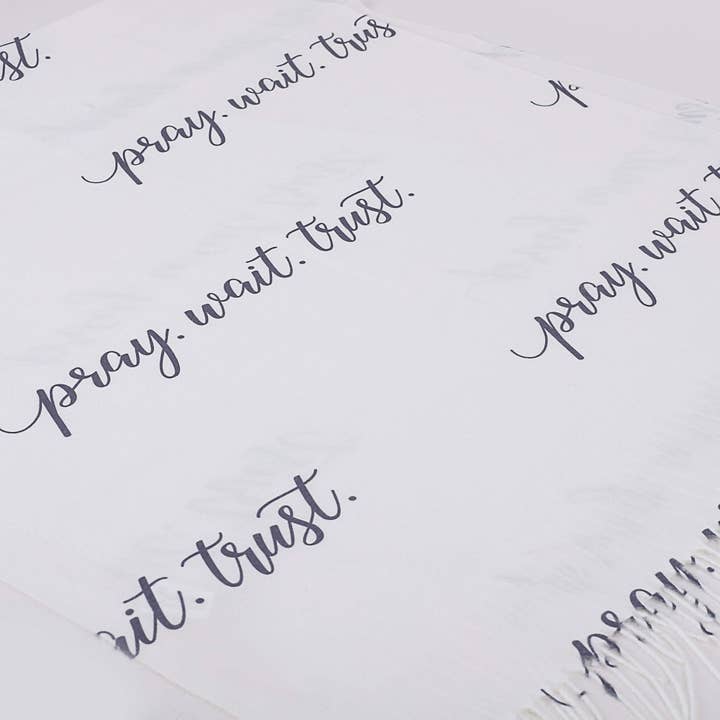 st.
pray. wait. trus
p
pray. wait. trust.
pray. wait. t
ait. trust.
pray.